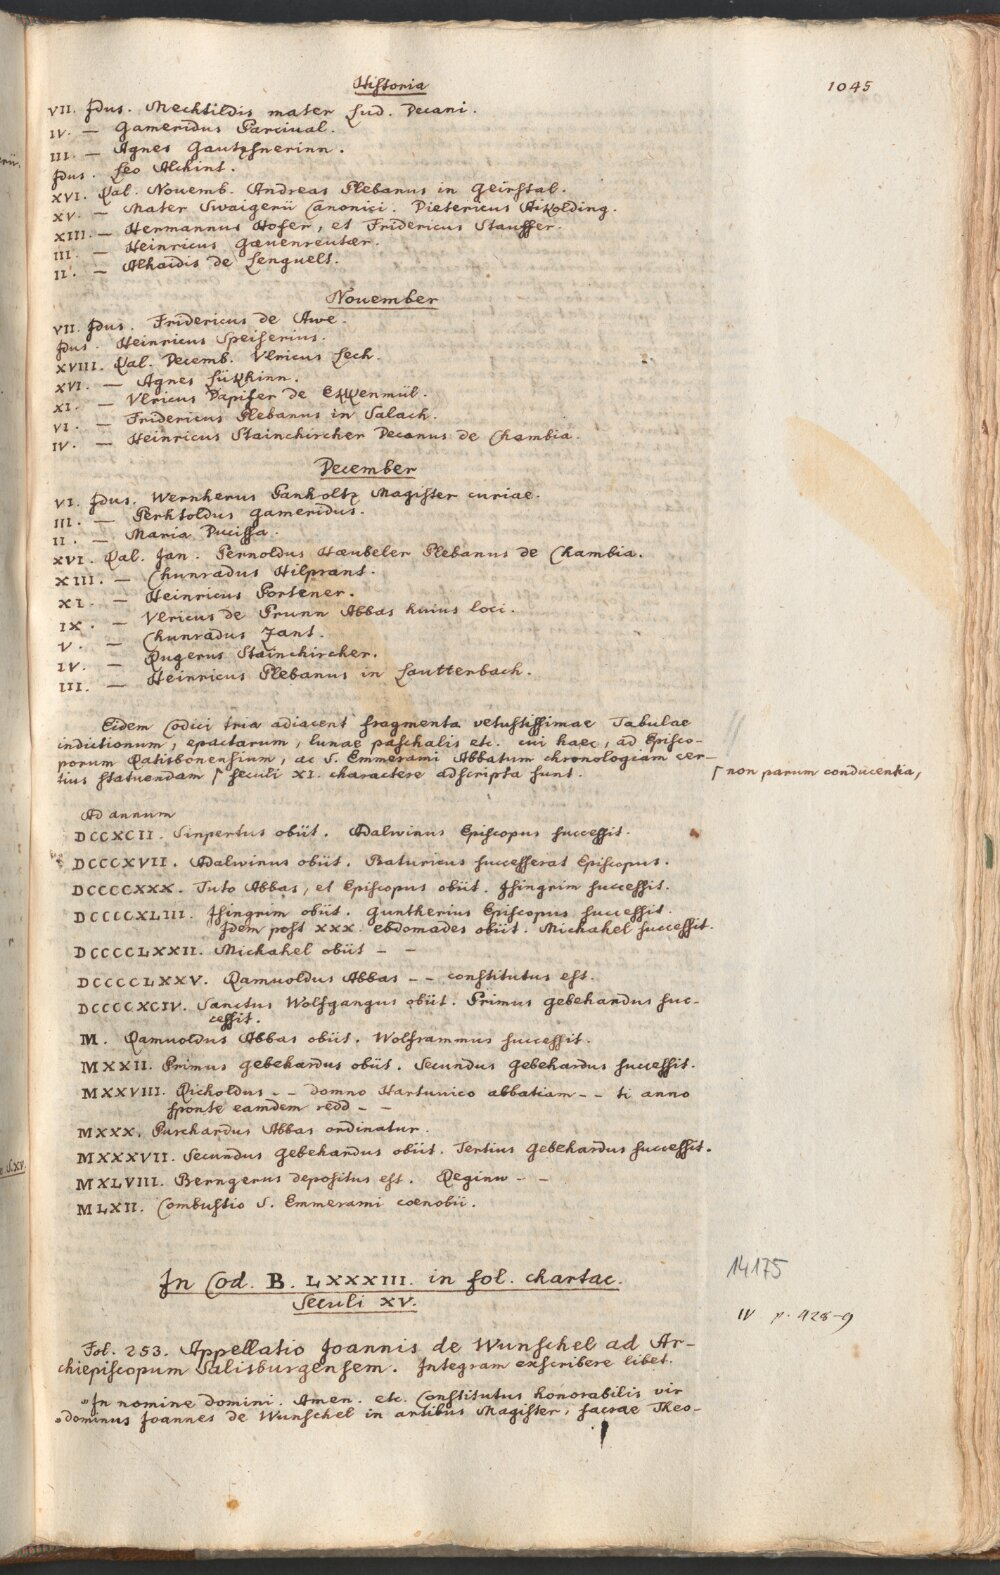 Historia
1045
VII. Idus. Mechtildis mater Lud. Decani.
IV. — Gameridus Parcival.
III. — Agnes Gautzsnerinn.
Idus. Leo Alchint.
XVI. Kal. Novemb. Andreas Plebanus in Geirstal.
XV. — Mater Swaigerii Canonici. Dietericus
XIII. — Hermannus Hofer, et Fridericus Stauffer.
III. — Heinricus Gaevenreutaer.
II. — Alhaidis de Lenguelt.
November
VII. Idus. Fridericus de Awe.
Idus. Heinricus Speiserius.
XVIII. Kal. Decemb. Vlricus Lech.
XVI. — Agnes
XI. — Vlricus Dapifer de
VI. — Fridericus Plebanus in Salach.
IV. — Heinricus Stainchircher Decanus de Chambia.
December
VI. Idus. Wernherus Panholtz Magister curiae.
III. — Perhtoldus Gameridus.
II. — Maria Ducissa.
XVI. Kal. Jan. Pernoldus Haeubeler Plebanus de Chambia.
XIII. — Chunradus Hilprant.
XI. — Heinricus Portener.
IX. — Vlricus de Prunn Abbas huius loci.
V. — Chunradus Zant.
IV. — Rugerus Stainchircher.
III. — Heinricus Plebanus in Lautterbach.
Eidem Codici tria adiacent fragmenta vetustissimae Tabulae
indictionum, epactarum, lunae paschalis etc. cui haec, ad Episco-
porum Ratisbonensium, ac S. Emmerami Abbatum chronologiam cer-
tius statuendam ⌈ seculi XI. charactere adscripta sunt.
⌈ non parum conducentia,
Ad annum
DCCXCII. Sinpertus obiit. Adalwinus Episcopus successit.
DCCCXVII. Adalwinus obiit. Baturicus successerat Episcopus.
DCCCCXXX. Tuto Abbas, et Episcopus obiit. Isingrim successit.
DCCCCXLIII. Isingrim obiit. Guntherius Episcopus successit.
Idem post XXX. ebdomades obiit. Michahel successit.
DCCCCLXXII. Michahel obiit – –
DCCCCLXXV. Ramuoldus Abbas – – constitutus est.
DCCCCXCIV. Sanctus Wolfgangus obiit. Primus Gebehardus suc-
cessit.
M. Ramuoldus Abbas obiit. Wolframmus successit.
MXXII. Primus Gebehardus obiit. Secundus Gebehardus successit.
MXXVIII. Richoldus – – domno Hartuuico abbatiam – – ti anno
sponte eamdem redd – –
MXXX. Purchardus Abbas ordinatur.
MXXXVII. Secundus Gebehardus obiit. Tertius Gebehardus successit.
MXLVIII. Berngerus depositus est. Reginw – –
MLXII. Combustio S. Emmerami coenobii.
In Cod. B. LXXXIII. in fol. chartac.
Seculi XV.
14175
IV p. 428-9
Fol. 253. Appellatio Joannis de Wunschel ad Ar-
chiepiscopum Salisburgensem. Integram exscribere libet.
"In nomine domini. Amen. etc. Constitutus honorabilis vir
"dominus Joannes de Wunschel in artibus Magister, sacrae Theo-